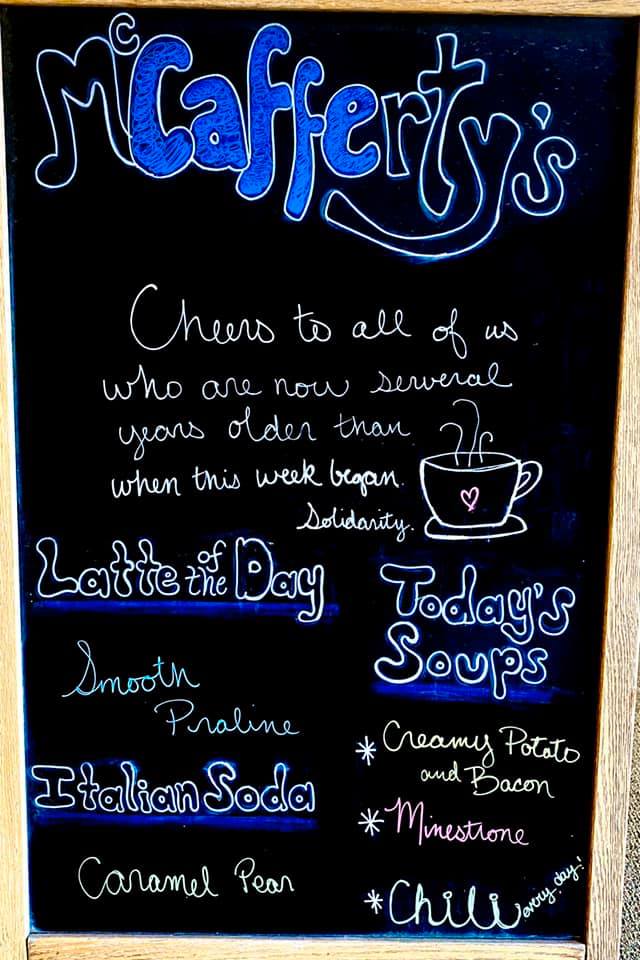 McCafferty's
Cheers to all of us
who are now serveral
years older than
when this week began.
Solidarity.
Latte of the Day
Smooth
Praline
Italian Soda
Caramel Pear
Today's
Soups
* Creamy Potato
and Bacon
* Minestrone
* Chili every day!